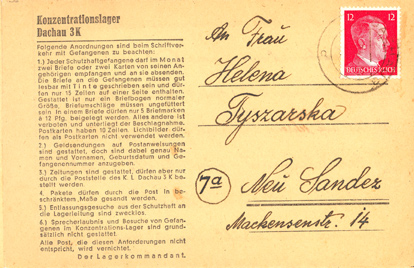 Konzentrationslager
Dachau 3K
Folgende Anordnungen sind beim Schriftver-
kehr mit Gefangenen zu beachten:
1.) Jeder Schutzhaftgefangene darf im Monat
zwei Briefe oder zwei Karten von seinen Ange-
hörigen empfangen und an sie absenden.
Die Briefe an die Gefangenen müssen gut
lesbar mit Tinte geschrieben sein und dür-
fen nur 15 Zeilen auf einer Seite enthalten.
Gestattet ist nur ein Briefbogen normaler
Größe. Briefumschläge müssen ungefüttert
sein. In einem Briefe dürfen nur 5 Briefmarken
à 12 Pfg. beigelegt werden. Alles andere ist
verboten und unterliegt der Beschlagnahme.
Postkarten haben 10 Zeilen. Lichtbilder dür-
fen als Postkarten nicht verwendet werden.
2.) Geldsendungen auf Postanweisungen
sind gestattet, doch sind dabei genau Na-
men und Vornamen, Geburtsdatum und Ge-
fangenennummer anzugeben.
3.) Zeitungen sind gestattet, dürfen aber nur
durch die Poststelle des K. L. Dachau 3 K be-
stellt werden
4.) Pakete dürfen durch die Post in be-
schränktem Maße gesandt werden.
5.) Entlassungsgesuche aus der Schutzhaft an
die Lagerleitung sind zwecklos.
6.) Sprecherlaubnis und Besuche von Gefan-
genen im Konzentrations-Lager sind grund-
sätzlich nicht gestattet.
Alle Post, die diesen Anforderungen nicht
entspricht, wird vernichtet.
Der Lagerkommandant.
An Frau
Helena
Tyszarska
7a
Neu Sandez
Mackensenstr. 14
12 12
DEUTSCHES REICH